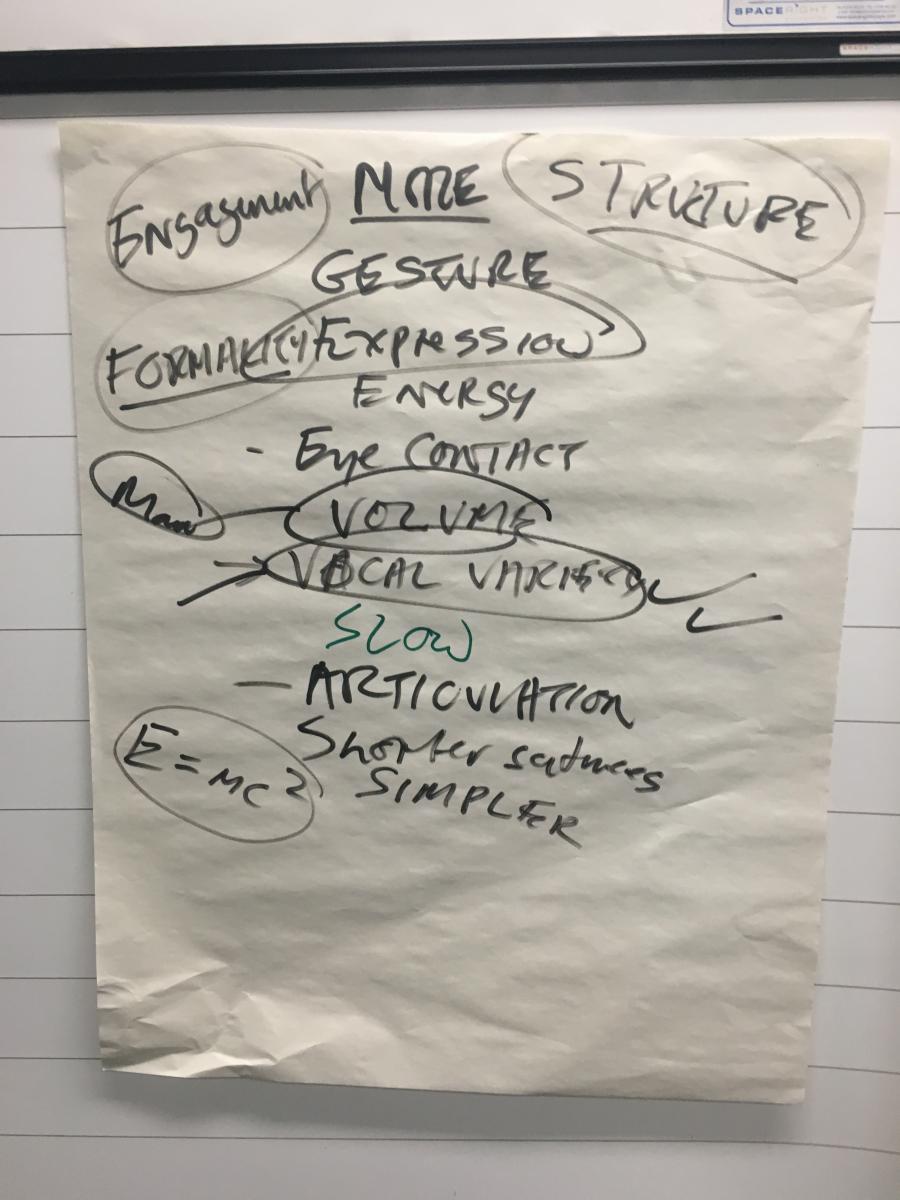 SPACERIGHT
Engagement
MORE
STRUCTURE
GESTURE
FORMALITY
Expression
ENERGY
- Eye CONTACT
VOLUME
VOCAL VARIETY
SLOW
- ARTICULATION
Shorter sentences
E = MC²
SIMPLER